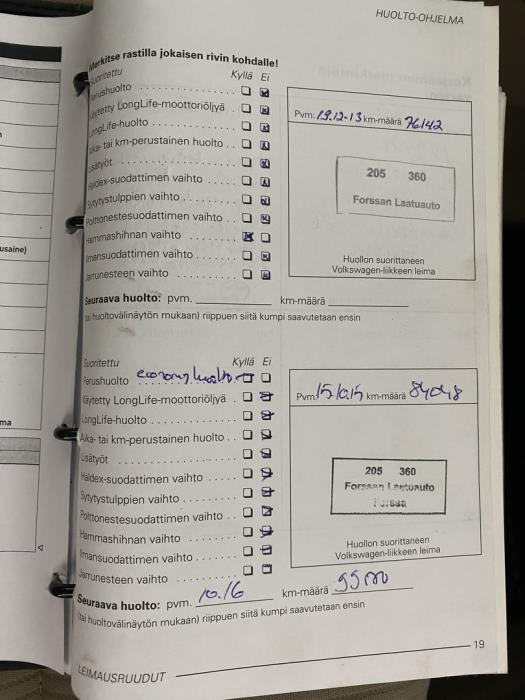 HUOLTO-OHJELMA
Merkitse rastilla jokaisen rivin kohdalle!
Suoritettu Kyllä Ei
Perushuolto
Käytetty LongLife-moottoriöljyä
LongLife-huolto
Aika- tai km-perustainen huolto
Lisätyöt
Haldex-suodattimen vaihto
Sytytystulppien vaihto
Polttonestesuodattimen vaihto
Hammashihnan vaihto
Ilmansuodattimen vaihto
Jarrunesteen vaihto
Pvm: 19.12-13 km-määrä 76142
205 360
Forssan Laatuauto
Huollon suorittaneen
Volkswagen-liikkeen leima
Seuraava huolto: pvm. km-määrä
(tai huoltovälinäytön mukaan) riippuen siitä kumpi saavutetaan ensin
usaine)
ma
Suoritettu Kyllä Ei
Perushuolto economy huolto
Käytetty LongLife-moottoriöljyä
LongLife-huolto
Aika- tai km-perustainen huolto
Lisätyöt
Haldex-suodattimen vaihto
Sytytystulppien vaihto
Polttonestesuodattimen vaihto
Hammashihnan vaihto
Ilmansuodattimen vaihto
Jarrunesteen vaihto
Pvm: km-määrä 84048
205 360
Forssan Laatuauto
Huollon suorittaneen
Volkswagen-liikkeen leima
Seuraava huolto: pvm. 10.16 km-määrä
(tai huoltovälinäytön mukaan) riippuen siitä kumpi saavutetaan ensin
LEIMAUSRUUDUT 19